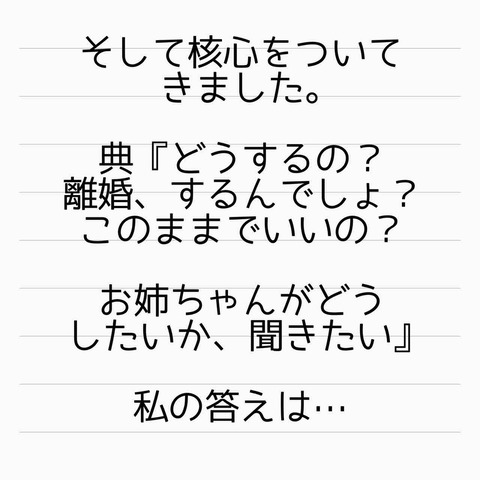 そして核心をついて
きました。
典『どうするの？
離婚、するんでしょ？
このままでいいの？
お姉ちゃんがどう
したいか、聞きたい』
私の答えは…